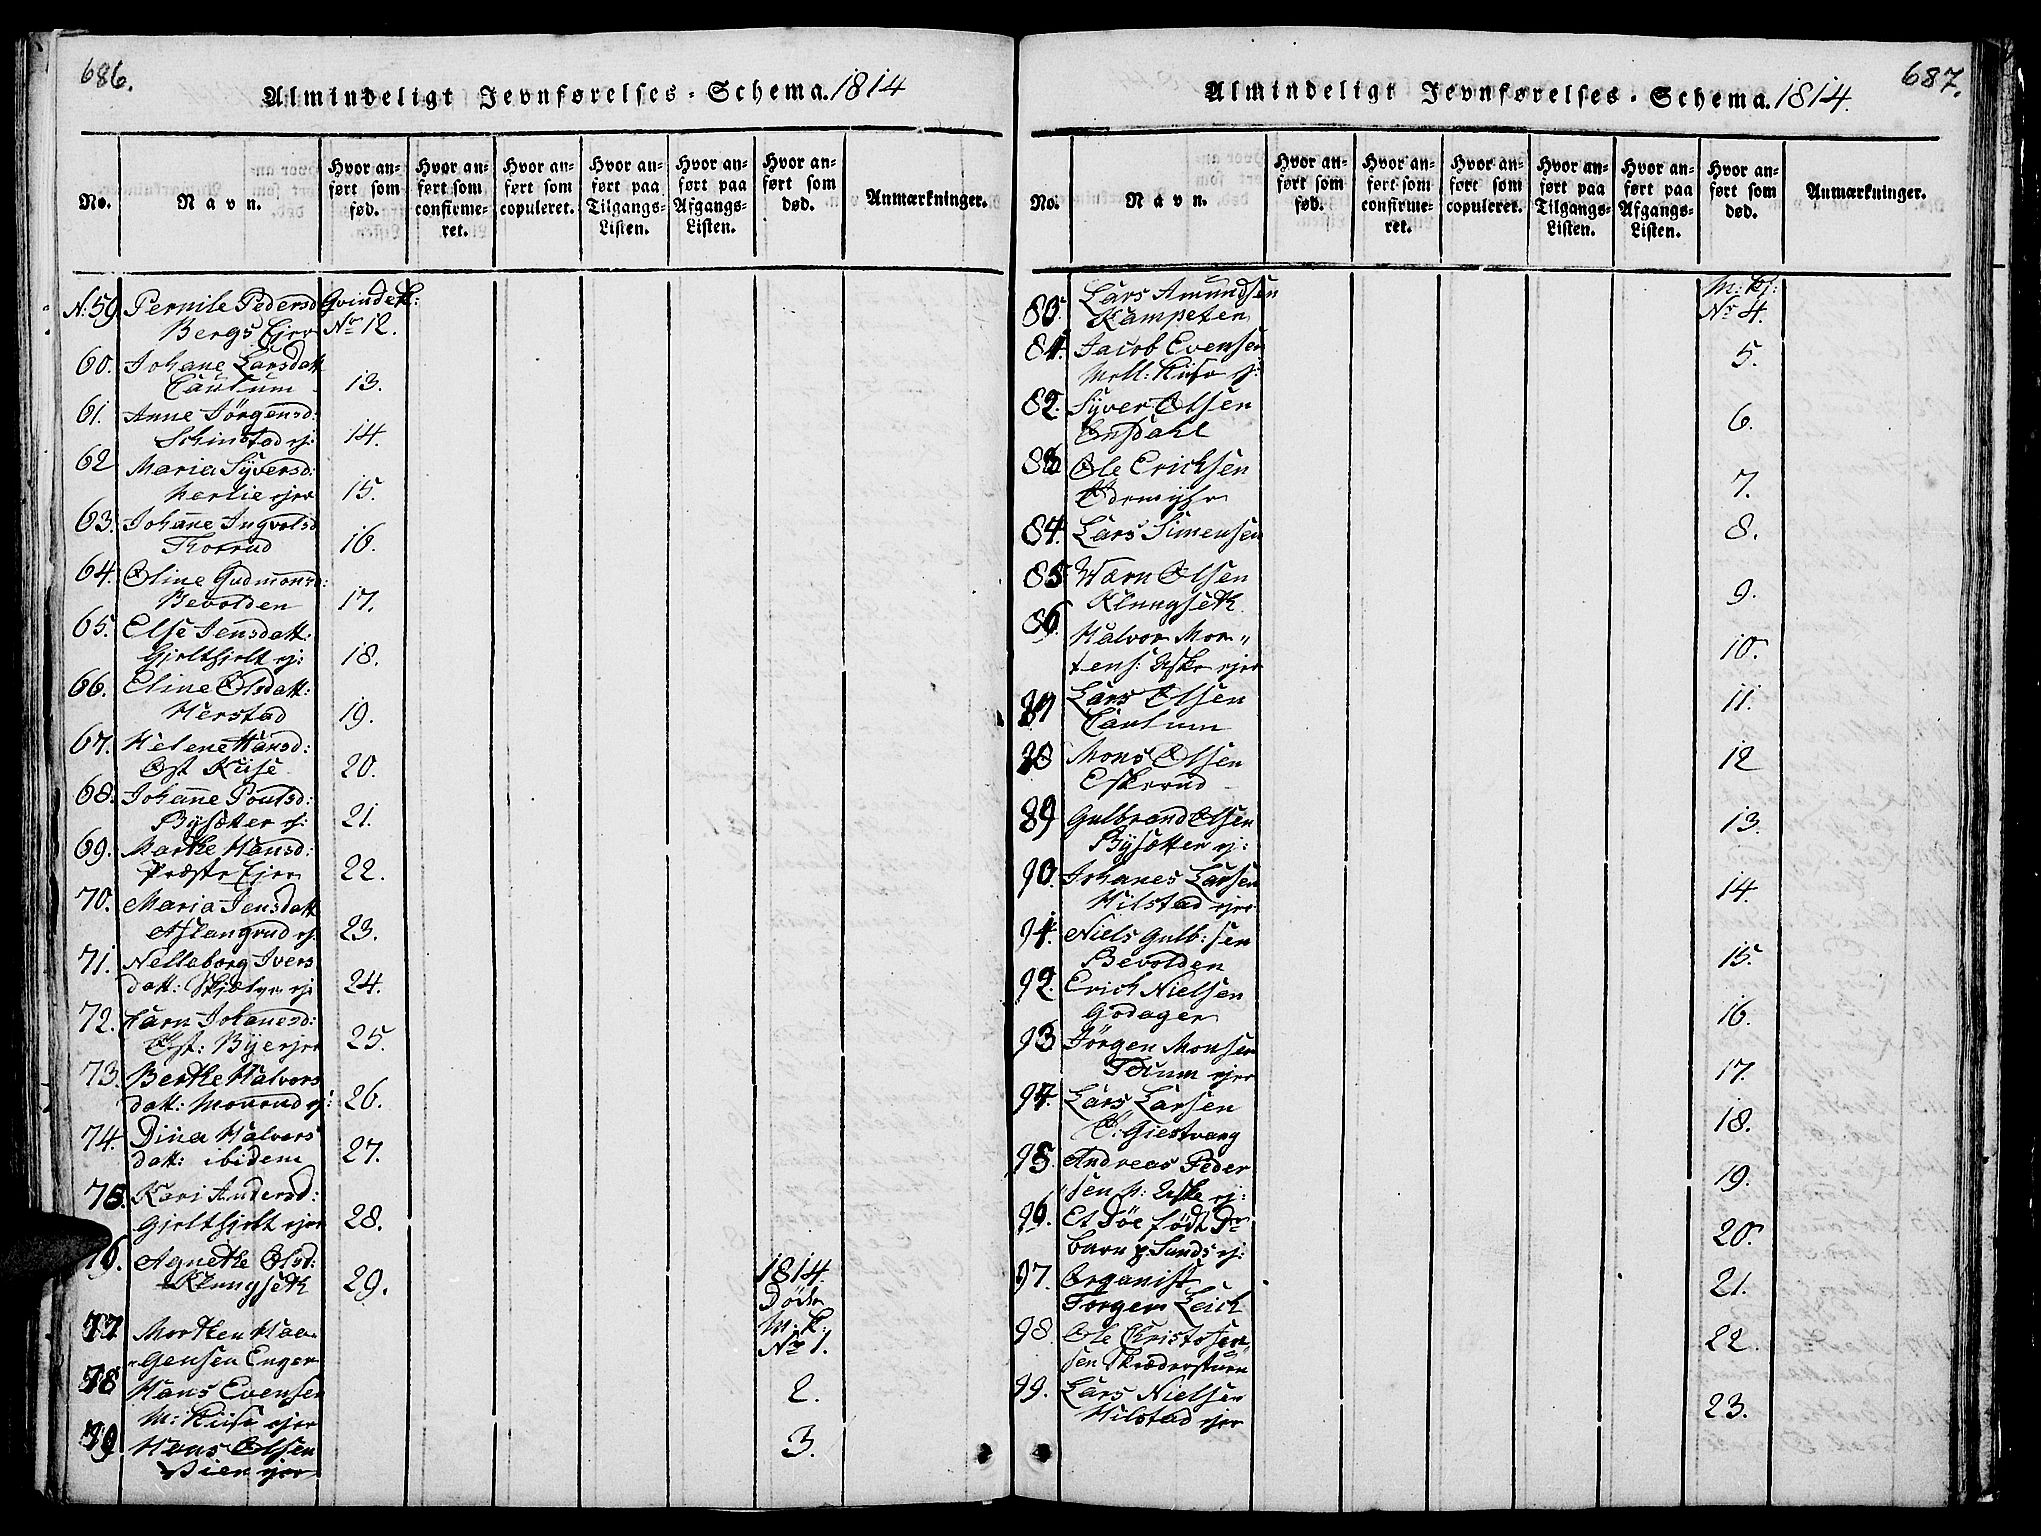 686.
Almindeligt Jevnførelses-Schema. 1814
No. Navn. Hvor anført som fød. Hvor anført som confirmeret. Hvor anført som copuleret. Hvor anført paa Tilgangs-Listen. Hvor anført paa Afgangs-Listen. Hvor anført som død. Anmærkninger.
N: 59. Pernile Pedersd Qvindek:
Bergs Ejer No 12.
60. Johane Larsdatt
Caulum 13.
61. Anne Jörgensd:
Schinstad ej: 14.
62 Maria Syversd:
Herlie ejer 15.
63. Johanne Ingvolsd
Thorrud 16.
64. Oline Gudmonsd:
Bevolden 17.
65. Else Jensdatt:
Gjeltfjelt ej: 18.
66. Eline Olsdatt:
Herstad 19.
67. Helene Hansd:
Öst Kiise 20.
68. Johanne Poulsd:
Bysætter ej: 21.
69. Marthe Hansd:
Præste Ejer 22.
70. Maria Jensdatt
Aslangrud ej: 23.
71. Nelleborg Ivers
datt: Skjelve ej 24.
72. Karn Johanesd:
Öst: Bye ejer 25.
73. Berthe Halvors
datt: Monrud ej: 26.
74. Dina Halvors
datt: ibidem 27.
75. Kari Andersd:
Gjeltfjelt ejer 28.
76. Agnethe Olsd:
Klungseth 29.
1814.
Döde
77 Morthen Haa- M: k:
gensen Enger No 1.
78 Hans Evensen 2.
M: Kiise ejer
79 Hans Olsen 3.
Lien ejer
687.
Almindeligt Jevnførelses-Schema. 1814.
No. Navn. Hvor anført som fød. Hvor anført som confirmeret. Hvor anført som copuleret. Hvor anført paa Tilgangs-Listen. Hvor anført paa Afgangs-Listen. Hvor anført som død. Anmærkninger.
80. Lars Amundsen M: kj:
Kampeten No 4.
81. Jacob Evensen 5.
Mell: Kiise ej:
82. Syver Olsen 6.
Onsdahl
83 Ole Erichsen
Ödemyhr 7.
84. Lars Simensen 8.
85 Warn Olsen
Klungseth 9.
86. Halvor Mor-
tens: Aske ejer 10.
87 Lars Olsen 11.
Caulum
88 Mons Olsen 12
Eskerud
89 Gulbrand Olsen 13.
Bysætter ej:
90. Johanes Larsen 14.
Hilstad ejer
91. Niels Gulb:sen
Bevolden 15.
92. Erich Nielsen
Godager 16.
93 Jörgen Monsen
Terum ejer 17.
94. Lars Larsen 18.
Ö: Giestvang
95. Andreas Peder 19.
sen N: Aske ej:
96. Et Döe födt Dr
barn p: Sunds ej: 20.
97. Organist 21.
Torger Leich
98. Ole Christofer 22.
sen Skræderstuen
99. Lars Nielsen 23.
Hilstad ejer